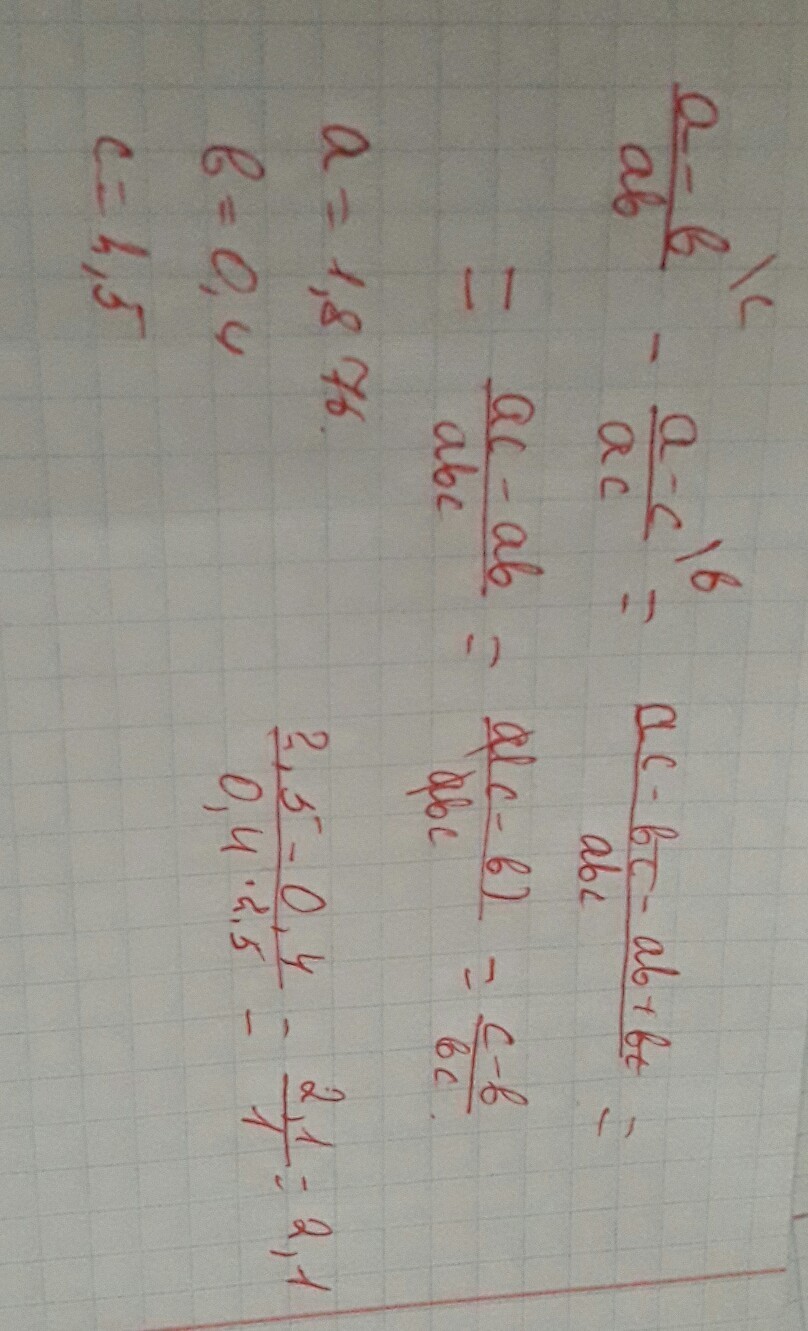 (a-b)/(ab) \c - (a-c)/(ac) \b = (ac-bc-ab+bc)/(abc) =
= (ac-ab)/(abc) = a(c-b)/(abc) = (c-b)/(bc).
a = 1,876.
b = 0,4
c = 2,5
(2,5-0,4)/(0,4·2,5) = 2,1/1 = 2,1